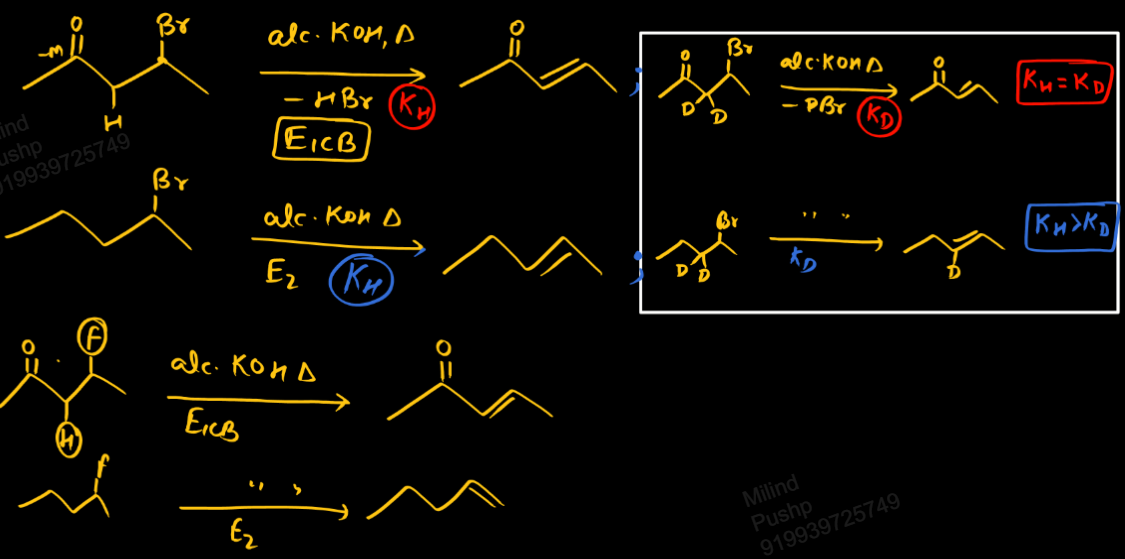 O Br alc. KOH, Δ O
-M
H - HBr KH
E1cB
O Br alc. KOH Δ O KH = KD
D D - DBr KD
Br alc. KOH Δ
E2 KH
Br " " KH > KD
D D KD D
O F alc. KOH Δ O
H E1cB
F " "
E2
ilind
ushp
919939725749
Milind
Pushp
919939725749